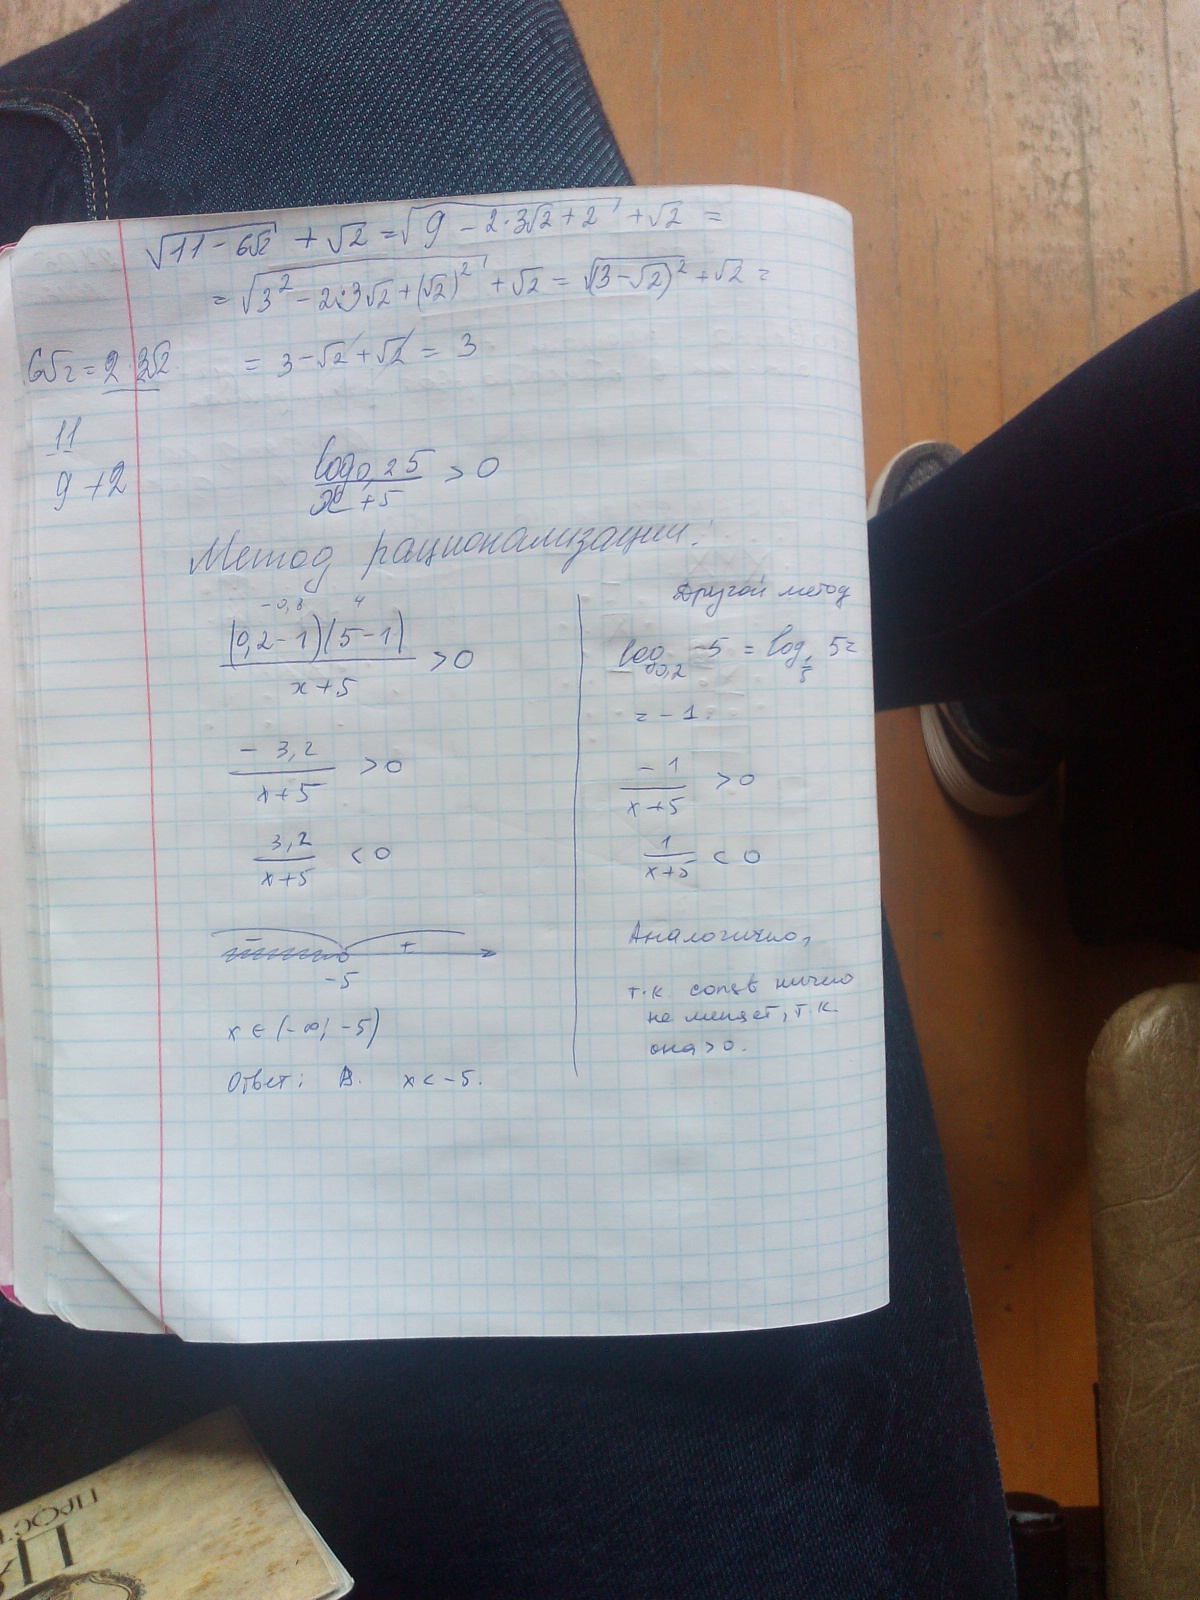 √11-6√2 + √2 = √9 - 2·3√2 + 2 + √2 =
= √3² - 2·3√2 + (√2)² + √2 = √(3-√2)² + √2 =
= 3 - √2 + √2 = 3
6√2 = 2·3√2
11
9 + 2
log₀,₂ 5 / x + 5 > 0
Метод рационализации:
-0,8 4
(0,2-1)(5-1) / x+5 > 0
- 3,2 / x+5 > 0
3,2 / x+5 < 0
- +
-5
x ∈ (-∞; -5)
Ответ: В. x < -5.
Другой метод
log₀,₂ 5 = log₁/₅ 5 =
= -1.
-1 / x+5 > 0
1 / x+5 < 0
Аналогично,
т.к. ничего
не меняет, т.к.
она > 0.
ПРОСТ